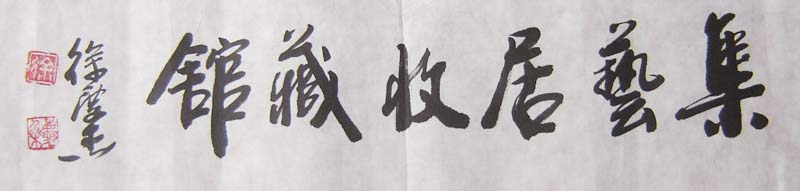 集藝居收藏舘
徐